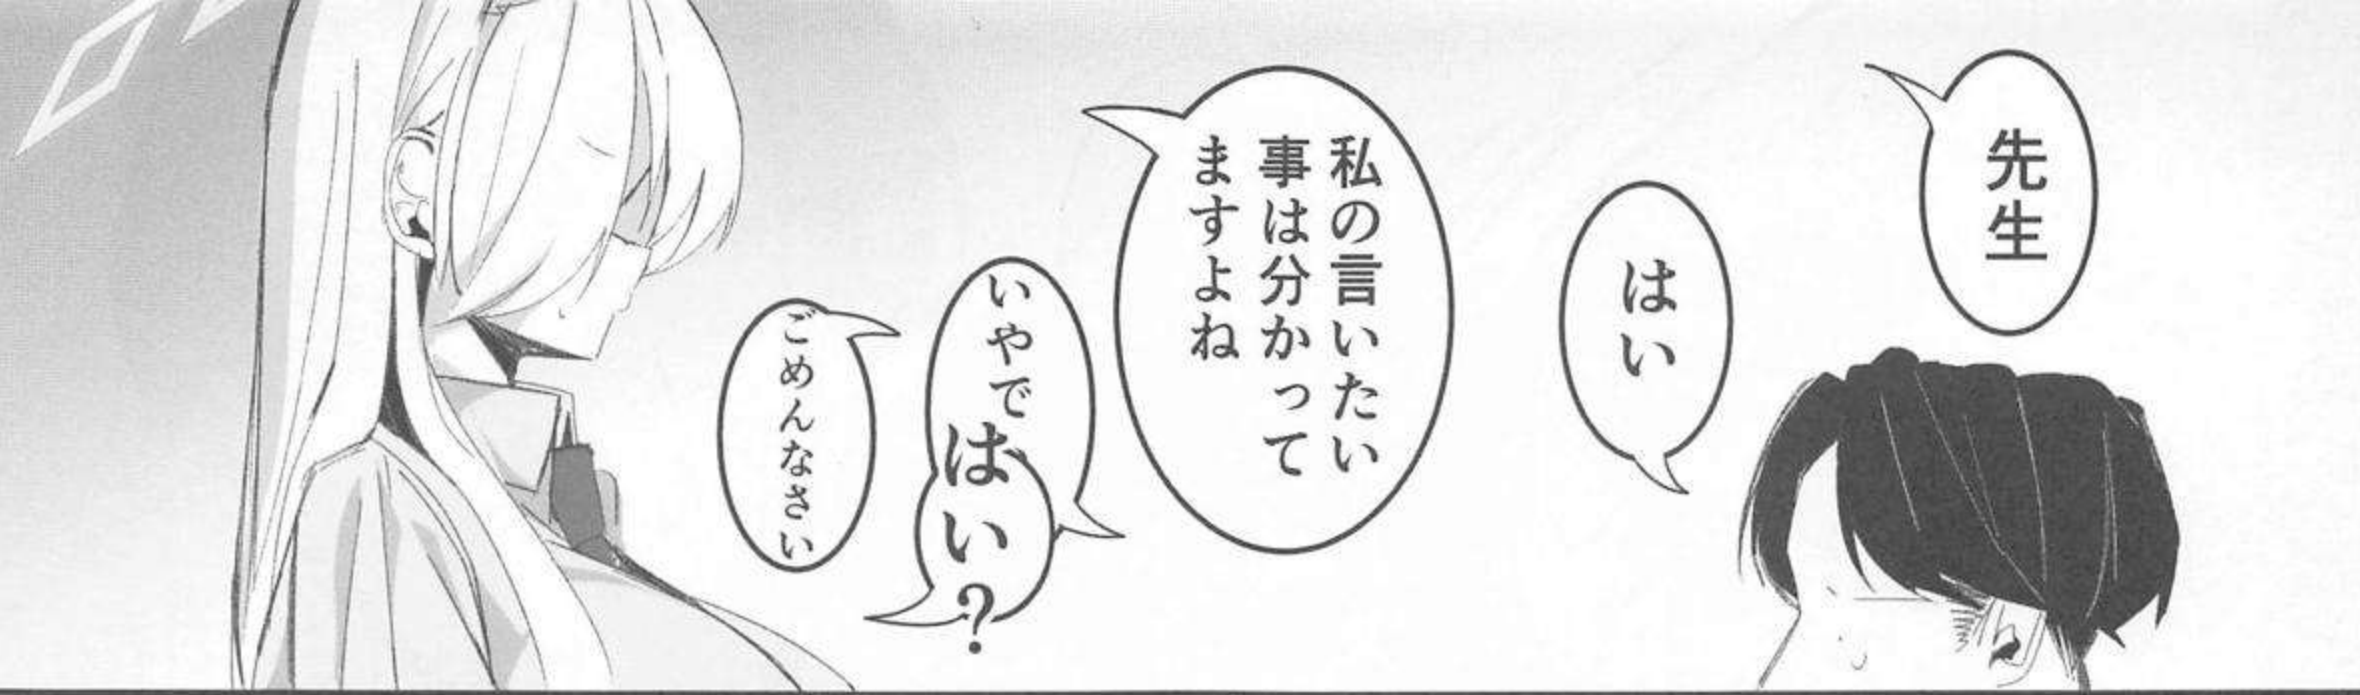 先生
はい
私の言いたい
事は分かって
ますよね
いやで
はい?
ごめんなさい